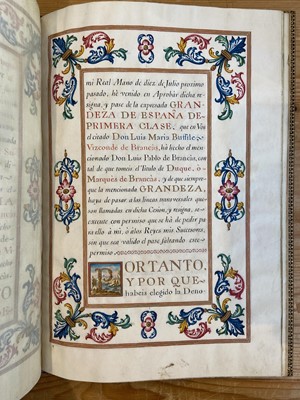 mi Real Mano de diez de Julio proximo
pasado, hè venido en Aprobar dicha re-
signa, y pase de la expresada GRAN-
DEZA DE ESPAÑA DE-
PRIMERA CLASE, que en Vos
el citado Don Luis Maria Buffile,
Vizconde de Brancás, hà hecho el men-
cionado Don Luis Pablo de Brancás, con
tal de que tomeis el Titulo de Duque, o-
Marqués de Brancás, y de que siempre-
que la mencionada GRANDEZA,
haya de pasar à las lineas transversales que-
son llamadas en dicha Cesion, y resigna, se-
execute con permiso que se hà de pedir pa
ra ello à mi, ò àlos Reyes mis Succesores,
sin que sea valido el pase faltando este-
permiso
POR TANTO,
Y POR QUE
habeis elegido la Deno-